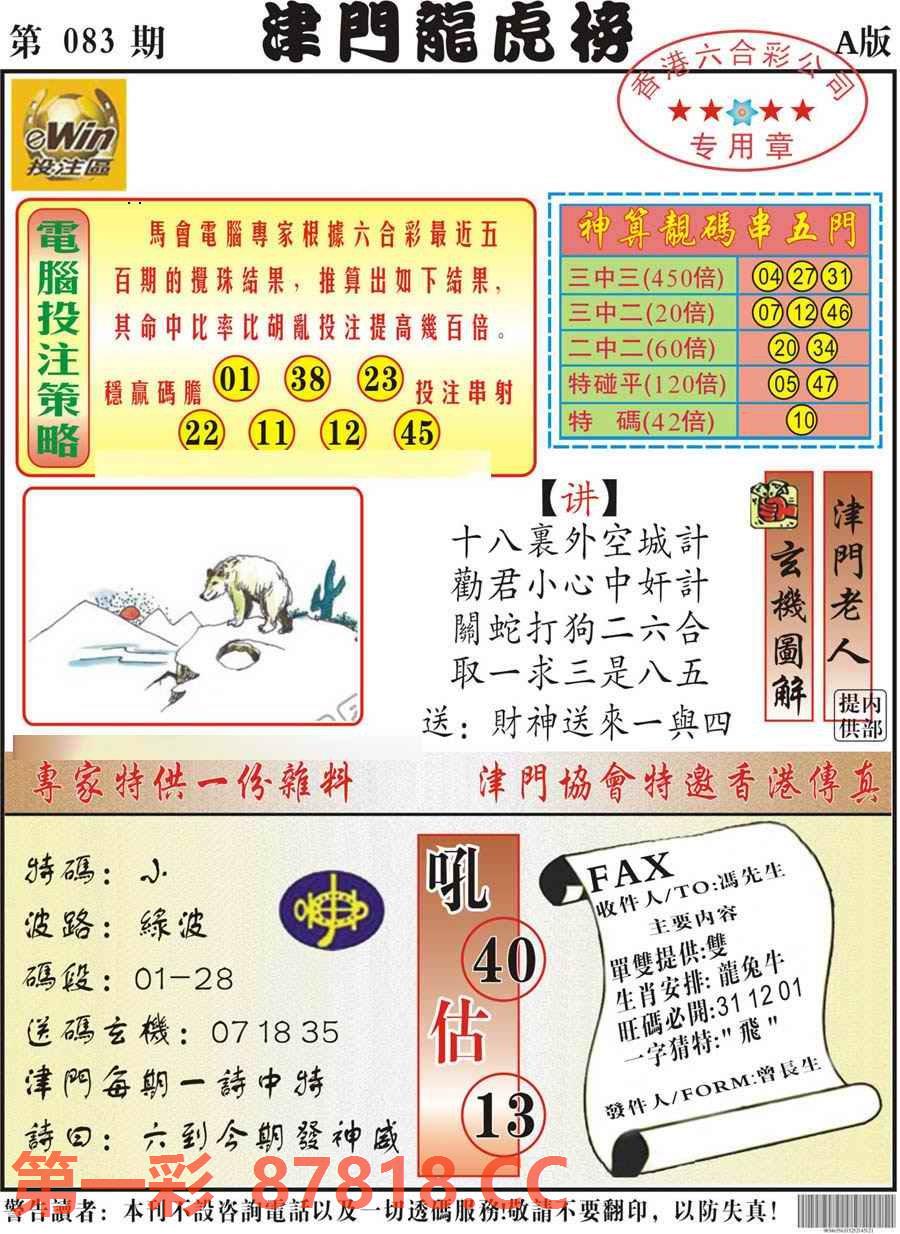 第 083 期
津門龍虎榜
A版
香港六合彩公司
专用章
eWin
投注區
電腦投注策略
馬會電腦專家根據六合彩最近五
百期的攪珠結果，推算出如下結果，
其命中比率比胡亂投注提高幾百倍。
穩贏碼膽 01 38 23 投注串射
22 11 12 45
神算靚碼串五門
三中三(450倍) 04 27 31
三中二(20倍) 07 12 46
二中二(60倍) 20 34
特碰平(120倍) 05 47
特 碼(42倍) 10
【讲】
十八裏外空城計
勸君小心中奸計
關蛇打狗二六合
取一求三是八五
送：財神送來一與四
玄機圖解
津門老人
内部提供
專家特供一份雜料
津門協會特邀香港傳真
特碼：小
波路：綠波
碼段：01-28
送碼玄機：07 18 35
津門每期一詩中特
詩曰：六到今期發神威
吼
40
估
13
FAX
收件人/TO:馮先生
主要内容
單雙提供:雙
生肖安排:龍兔牛
旺碼必開:31 12 01
一字猜特:"飛"
發件人/FORM:曾長生
第一彩 87818.CC
警告讀者：本刊不設咨詢電話以及一切透碼服務!敬請不要翻印，以防失真!